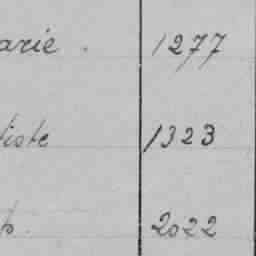 arie. 1277
tiste 1323
2022